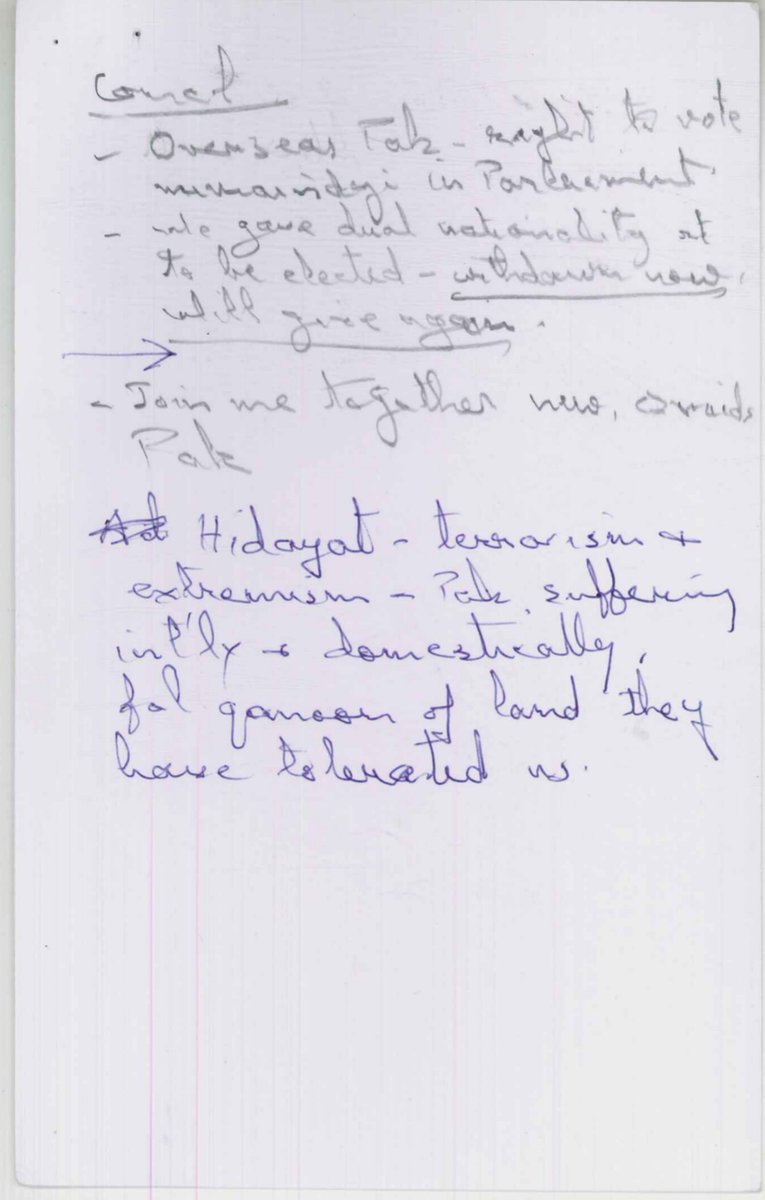 - Overseas Pak - right to vote
numaindgi in Parliament
- we gave dual nationality rt
to be elected - withdrawn now,
will give again.
- Join me together now,
Pak
Hidayat - terrorism +
extremism - Pak suffering
int'lly + domestically,
fol qanoon of land they
have tolerated us.